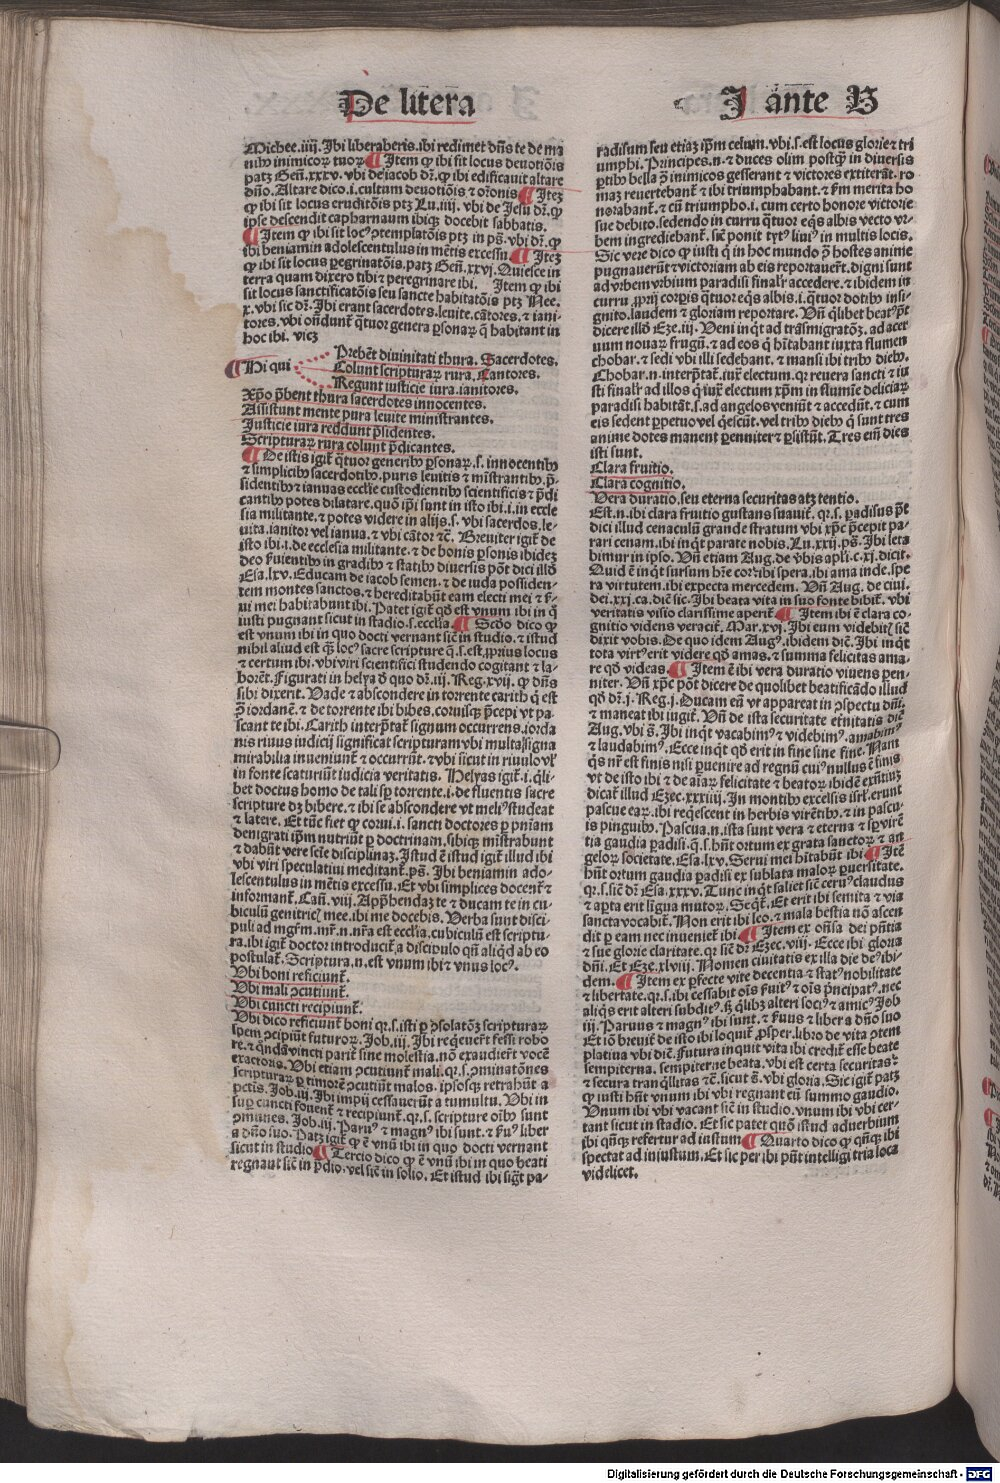 De litera
J ante B
Michee.iiij. Ibi liberaberis.ibi redimet dñs te de ma
nibꝰ inimicoꝝ tuoꝝ ¶ Item ꝙ ibi sit locus deuotiõis
patꝫ Geñ.xxxv. vbi de iacob dꝛ̃.ꝙ ibi edificauit altare
dño. Altare dico.i.cultum deuotiõis ⁊ oꝛõnis ¶ Iteꝫ
ꝙ ibi sit locus eruditõis ptꝫ Lu.iiij. vbi de Jesu dꝛ̃.ꝙ
ipse descendit capharnaum ibiqꝫ docebit sabbatis.
¶ Item ꝙ ibi sit locꝰ ꝯtemplatõis ptꝫ in ps̃.vbi dꝛ̃.ꝙ
ibi beniamin adolescentulus in mẽtis excessu ¶ Iteꝫ
ꝙ ibi sit locus ꝑegrinatõis.patꝫ Geñ.xxvj. Quiesce in
terra quam dixero tibi ⁊ peregrinare ibi. Item ꝙ ibi
sit locus sanctificatõis seu sancte habitatõis ptꝫ Nee.
x.vbi sic dꝛ̃. Ibi erant sacerdotes.leuite.cãtores.⁊ iani-
tores.vbi oñdunt̃ qͣtuor genera ꝑsonaꝝ q̃ habitant in
hoc ibi. vicꝫ
Prebẽt diuinitati thura. Sacerdotes.
¶ Hi qui Colunt scripturaꝝ rura. Cantores.
Regunt iusticie iura.ianitores.
Xp̃o p̃bent thura sacerdotes innocentes.
Assistunt mente pura leuite ministrantes.
Justicie iura reddunt p̃sidentes.
Scripturaꝝ rura colunt p̃dicantes.
¶ De istis igit̃ qͣtuor generibꝰ ꝑsonaꝝ.s. innocentibꝰ
⁊ simplicibꝰ sacerdotibꝰ.puris leuitis ⁊ mĩstrantibꝰ.p̃-
sidentibꝰ ⁊ ianuas ecclie custodientibꝰ scientificis ⁊ p̃di
cantibꝰ potes dilatare.quõ ip̃i sunt in isto ibi.i.in eccle
sia militante.⁊ potes videre in alijs.s. vbi sacerdos.le-
uita.ianitor vel ianua.⁊ vbi cãtor ⁊c̃. Breuiter igit̃ de
isto ibi.i.de ecclesia militante.⁊ de bonis ꝑsonis ibideꝫ
deo ẜuientibꝰ in gradibꝰ ⁊ statibꝰ diuersis põt dici illđ
Esa.lxv. Educam de iacob semen.⁊ de iuda possiden-
tem montes sanctos.⁊ hereditabũt eam electi mei ⁊ ẜ-
ui mei habitabunt ibi. Patet igit̃ qđ est vnum ibi in q̊
iusti pugnant sicut in stadio.s.ecclia ¶ Scđo dico ꝙ
est vnum ibi in quo docti vernant sic̃ in studio.⁊ istud
nihil aliud est q̃ꝫ locꝰ sacre scripture q̃.s.est ꝓprius locus
⁊ certum ibi.vbi viri scientifici studendo cogitant ⁊ la-
borẽt. Figurati in helya đ quo dꝛ̃.iij. Reg.xvij. ꝙ dñs
sibi dixerit. Uade ⁊ abscondere in torrente carith q̃ est
ꝯ̃ iordanẽ.⁊ de torrente ibi bibes.coruisqꝫ p̃cepi vt pa-
scant te ibi. Carith interp̃tat̃ signum occurrens.iorda
nis riuus iudicij significat scripturam vbi multa signa
mirabilia inueniunt̃ ⁊ occurrũt.⁊ vbi sicut in riuulo vl̃
in fonte scaturiũt iudicia veritatis. Helyas igit̃.i.qͥli-
bet doctus homo de tali sꝑ torrente.i.de fluentis sacre
scripture dꝫ bibere.⁊ ibi se abscondere vt meliꝰ studeat
⁊ latere. Et tũc fiet ꝙ corui.i. sancti doctores ꝑ pñiam
denigrati ip̃m nutriũt ꝑ doctrinam.sibiqꝫ mĩstrabunt
⁊ dabũt vere scĩe disciplinaꝫ. Istud ẽ istud igit̃ illud ibi
vbi viri speculatiui meditant̃.ps̃. Ibi beniamin ado-
lescentulus in mẽtis excessu. Et vbi simplices docent̃ ⁊
informant̃. Cañ.viij. App̃hendaꝫ te ⁊ ducam te in cu-
biculũ genitricꝭ mee.ibi me docebis. Uerba sunt disci-
puli ad mgr̃m.mr̃.n.nr̃a est ecclia.cubiculũ est scriptu-
ra.ibi igit̃ doctor introducit̃ a discipulo qñ aliqd ab eo
postulat̃. Scriptura.n.est vnum ibi ⁊ vnus locꝰ.
Ubi boni reficiunt̃.
Ubi mali ꝯcutiunt̃.
Ubi cuncti recipiunt̃.
Ubi dico reficiunt̃ boni qꝛ.s.isti ꝑ ꝯsolatõꝫ scripturaꝝ
spem ꝯcipiũt futuroꝝ. Job.iij. Ibi reqͥeuerũt fessi robo
re.⁊ qͦndã vincti parit̃ sine molestia.nõ exaudierũt vocẽ
exactoris. Ubi etiam ꝯcutiunt̃ mali.qꝛ.s.ꝯminatõnes
scripturaꝝ ꝑ timorẽ ꝯcutiũt malos.ipsosqꝫ retrahũt a
pctĩs. Job.iij. Ibi impij cessauerũt a tumultu. Ubi in
suꝑ cuncti fouent̃ ⁊ recipiunt̃.qꝛ.s. scripture oĩbꝰ sunt
ꝯmunes. Job.iij. Paruꝰ ⁊ magnꝰ ibi sunt.⁊ ẜuꝰ liber
a dño suo. Patꝫ igit̃ ꝙ ẽ vnũ ibi in quo docti vernant
sicut in studio ¶ Tercio dico ꝙ ẽ vnũ ibi in quo beati
regnant sic̃ in p̃dio.vel sic̃ in solio. Et istud ibi sigͭ pa-
radisum seu etiaꝫ ip̃m celum.vbi.s.est locus glorie ⁊ tri
umphi. Principes.n.⁊ duces olim postqͣꝫ in diuersis
ꝑtibꝰ bella ꝯ̃ inimicos gesserant ⁊ victores extiterãt.ro
maꝫ reuertebant̃ ⁊ ibi triumphabant.⁊ ẜm merita ho
norabant̃.⁊ cũ triumpho.i. cum certo honore victorie
sue debito.sedendo in curru qͣtuor eqͥs albis vecto vr-
bem ingrediebant̃.sic̃ ponit tytꝰ liuiꝰ in multis locis.
Sic vere dico ꝙ iusti q̃ in hoc mundo ꝯ̃ hostes anime
pugnauerũt ⁊ victoriam ab eis reportauerũt.digni sunt
ad vrbem vrbium paradisi finalr̃ accedere.⁊ ibidem in
curru ꝓprij corꝑis qͣtuor eqͥs albis.i.qͣtuor dotibꝰ insi-
gnito.laudem ⁊ gloriam reportare. Uñ qͥlibet beatꝰ põt
dicere illđ Eze.iij. Ueni inqͥt ad trãsmigratõꝫ.ad acer
uum nouaꝝ frugũ.⁊ ad eos q̃ hĩtabant iuxta flumen
chobar.⁊ sedi vbi illi sedebant.⁊ mansi ibi tribꝰ diebꝰ.
Chobar.n.interp̃tat̃.iux̃ electum.qꝛ reuera sancti ⁊ iu
sti finalr̃ ad illos qͥ iux̃ electum xp̃m in flumĩe deliciaꝝ
paradisi habitãt.s.ad angelos veniũt ⁊ accedũt.⁊ cum
eis sedent ꝑpetuo vel qͥescũt.vel tribꝰ diebꝰ q̃ sunt tres
anime dotes manent ꝑenniter ⁊ ꝑsistũt. Tres em̃ dies
isti sunt.
Clara fruitio.
Clara cognitio.
Uera duratio.seu eterna securitas atqꝫ tentio.
Est.n.ibi clara fruitio gustans suauit̃.qꝛ.s. ꝑadisus põt
dici illud cenaculũ grande stratum vbi xp̃c p̃cepit pa-
rari cenam.ibi inqͥt parate nobis. Lu.xxij.ps̃. Ibi leta
bimur in ipso. Uñ etiam Aug.de v̓bis apl̃i.c.xj.dicit.
Quid ẽ inqͥt sursum hr̃e cor.ibi spera.ibi ama inde.spe
ra virtutem.ibi expecta mercedem. Uñ Aug.de ciui.
dei.xxj.ca.dic̃ sic. Ibi beata vita in suo fonte bibit̃. vbi
veritatis visio clarissime aperit̃ ¶ Item ibi ẽ clara co-
gnitio videns veracit̃. Mar.xvj. Ibi eum videbitꝭ sic̃
dixit vobis. De quo idem Augꝰ.ibidem dic̃. Ibi inqͥt
tota virtꝰ erit videre qđ amas.⁊ summa felicitas ama-
re qđ videas ¶ Item ẽ ibi vera duratio viuens ꝑen-
niter. Uñ xp̃c põt dicere de quolibet beatificãdo illud
qđ dꝛ̃.j. Reg.j. Ducam eũ vt appareat in ꝯspectu dñi.
⁊ maneat ibi iugit̃. Uñ de ista securitate et̃nitatis dic̃
Aug.vbi s̃. Ibi inqͥt vacabimꝰ ⁊ videbimꝰ.amabimꝰ
⁊ laudabimꝰ. Ecce inqͥt qđ erit in fine sine fine. Nam
q̃s nr̃ est finis nisi ꝑuenire ad regnũ cuiꝰ nullus ẽ finis
vt de isto ibi ⁊ de aĩaꝝ felicitate ⁊ beatoꝝ ibidẽ exñtiuꝫ
dicat̃ illud Ezec.xxxiiij. In montibꝰ excelsis isrl̃.erunt
pascue eaꝝ.ibi reqͥescent in herbis virẽtibꝰ.⁊ in pascu-
is pinguibꝰ. Pascua.n.ista sunt vera ⁊ eterna ⁊ sꝑ virẽ
tia gaudia ꝑadisi.q̃.s.hñt ortum ex grata sanctoꝝ ⁊ an
geloꝝ societate. Esa.lxv. Serui mei hĩtabũt ibi ¶ Itẽ
hñt ortum gaudia ꝑadisi ex sublata maloꝝ ꝑuersitate.
qꝛ.s.sic̃ dꝛ̃ Esa.xxxv. Tunc inqͥt saliet sic̃ ceruꝰ claudus
⁊ aꝑta erit lĩgua mutoꝝ. Seqͥt̃. Et erit ibi semita ⁊ via
sancta vocabit̃. Non erit ibi leo.⁊ mala bestia nõ ascen
dit ꝑ eam nec inueniet̃ ibi ¶ Item ex oñsa dei pñtia
⁊ sue glorie claritate.qꝛ sic̃ dꝛ̃ Ezec.viij. Ecce ibi gloria
dñi. Et Eze.xlviij. Nomen ciuitatis ex illa die deꝰ ibi-
dem. ¶ Item ex ꝑfecte vite decentia ⁊ statꝰ nobilitate
⁊ libertate.qꝛ.s.ibi cessabit oĩs ẜuitꝰ ⁊ oĩs p̃ncipatꝰ.nec
aliqͥs erit alteri subditꝰ.sꝫ qͥlibꝫ alteri sociꝰ ⁊ amicꝰ Job
iij. Paruus ⁊ magnꝰ ibi sunt.⁊ ẜuus ⁊ liber a dño suo
Et iõ breuit̃ de isto ibi loquit̃ ꝓsper.libro de vita ꝯtem
platiua vbi dic̃. Futura inquit vita ibi credit̃ esse beate
sempiterna.sempiterne beata.vbi est certa securitas
⁊ secura tranqͥllitas ⁊c̃.sicut s̃.vbi gloria. Sic igit̃ patꝫ
ꝙ iusti hñt vnum ibi vbi regnant cũ summo gaudio.
Unum ibi vbi vacant sic̃ in studio.vnum ibi vbi cer-
tant sicut in stadio. Et sic patet quõ istud aduerbium
ibi qñqꝫ refertur ad iustum ¶ Quarto dico ꝙ qñqꝫ ibi
spectat ad iniustum. Et sic per ibi pñt intelligi tria loca
videlicet.
Digitalisierung gefördert durch die Deutsche Forschungsgemeinschaft - DFG